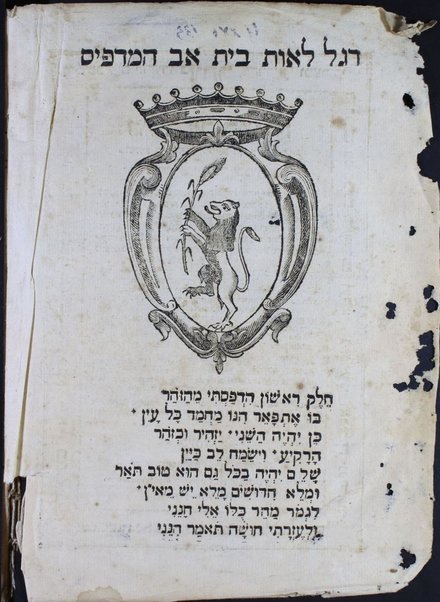 דגל לאות בית אב המדפיס
חֵלֶק רִאשׁוֹן הִדְפַּסְתִּי מֵהַזֹּהַר
בּוֹ אֶתְפָּאֵר הִנּוֹ מַחְמַד כָּל עָיִן
כֵּן יִהְיֶה הַשֵּׁנִי יַזְהִיר וּכְזֹהַר
הָרָקִיעַ וִישַׂמַּח לֵב כַּיָּיִן
שָׁלֵם יִהְיֶה בַּכֹּל גַּם הוּא טוֹב תֹּאַר
וּמָלֵא חִדּוּשִׁים מָלֵא יֵשׁ מֵאַיִן
לִגְמֹר מַהֵר כֻּלּוֹ אֵלִי חָנֵּנִי
וּלְעֶזְרָתִי חוּשָׁה תֹּאמַר הִנֵּנִי